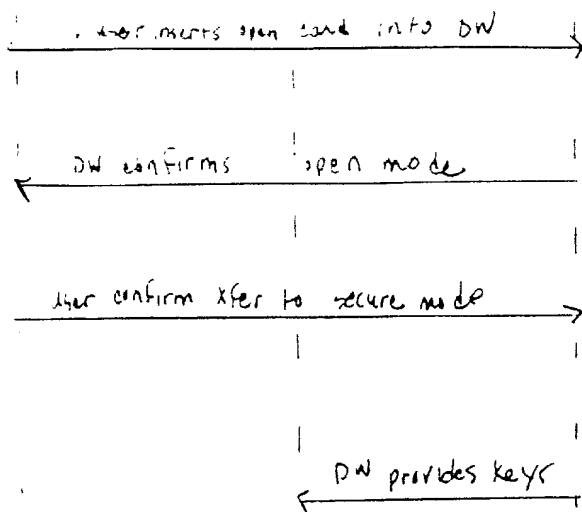 user inserts open card into DW
DW confirms open mode
User confirm Xfer to secure mode
DW provides keys